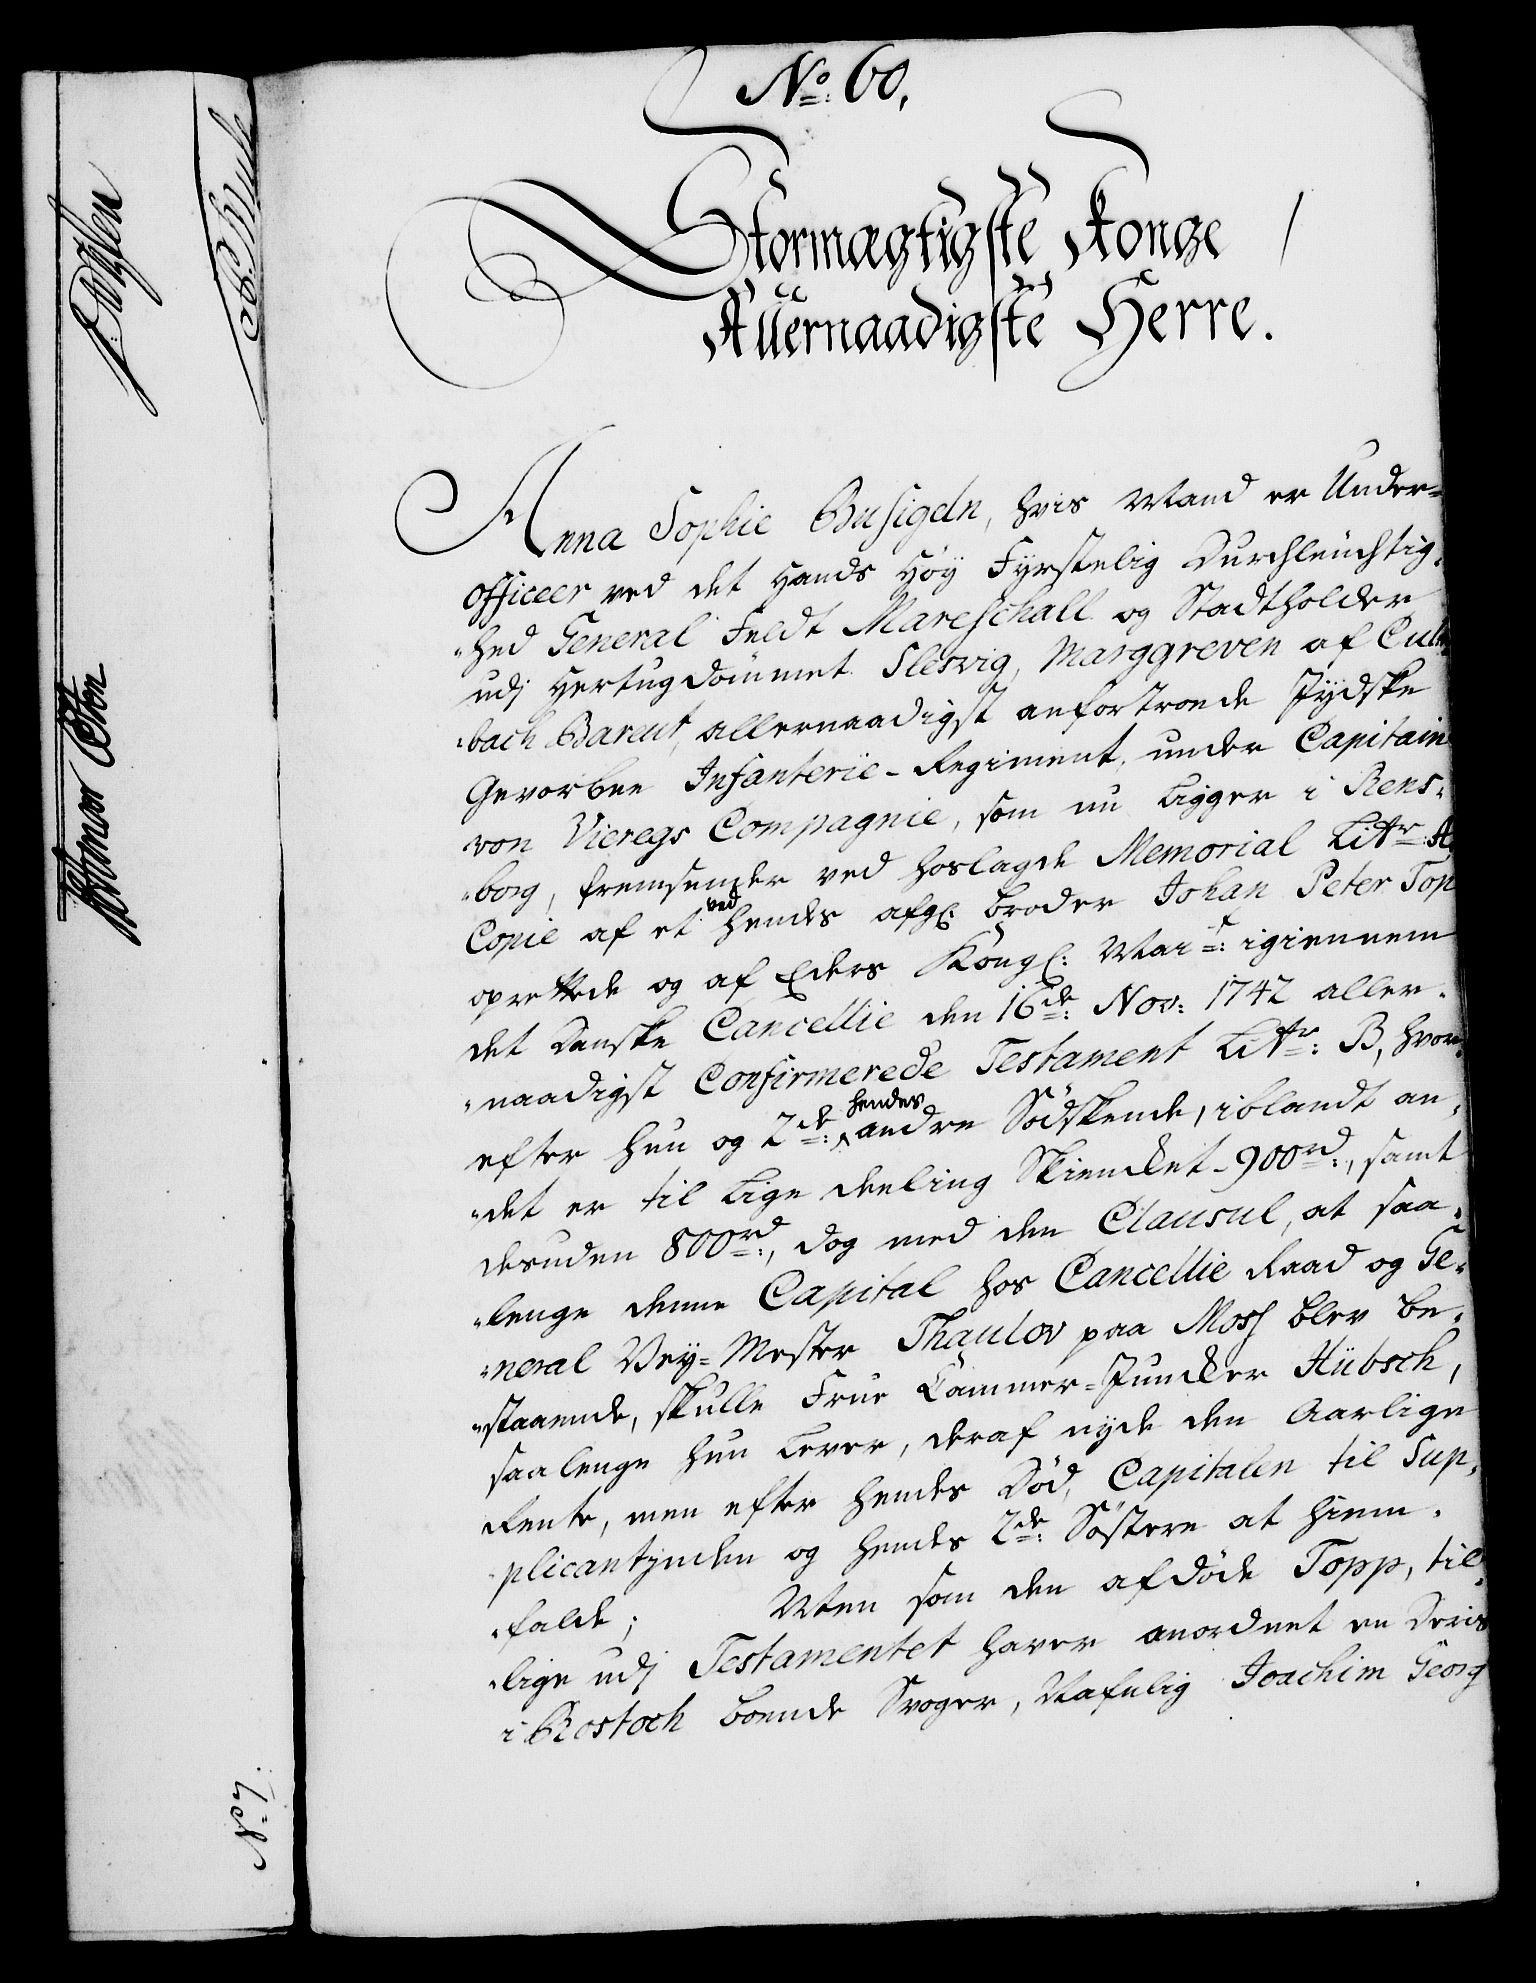 No: 60,
Stormægtigste Konge
Allernaadigste Herre.
Anna Sophie Busigeln, hvis Mand er Under-
officeer ved det Hands Høy Fyrstelig Durchleuchtig-
hed General Feldt Mareschall og Stadtholder
udj Hertugdømmet Slesvig, Marggreven af Culm-
bach Bareut, allernaadigst anfortroede Jydske
Gevorbne Infanterie-Regiment, under Capitain
von Vieregs Compagnie, som nu ligger i Rens-
borg, fremsender ved hoslagde Memorial Littr: A
Copie af et ved hendes afg: broder Johan Peter Top
oprettede og af Eders Kongl: Mait: igiennem
det Danske Cancellie den 16de: Nov: 1742 aller-
naadigst Confirmerede Testament Littr: B, hvor-
efter hun og 2de: hendes andre Sødskende, iblandt an-
det er til lige deeling Skiencket 900rd:, samt
desuden 800rd:, dog med den Clausul, at saa-
lenge denne Capital hos Cancellie Raad og Ge-
neral Vey-Mester Thaulov paa Moss blev be-
staaende, skulle Frue Cammer-Juncker Hübsch,
saalenge hun lever, deraf nyde den Aarlige
Rente, men efter hendes Død, Capitalen til Sup-
plicantinden og hendes 2de: Søstere at hiem-
falde; Men som den afdøde Topp, til-
lige udj Testamentet haver anordnet en Deris
i Rostoch boende Svoger, Nafnlig Joachim Georg
No 7.